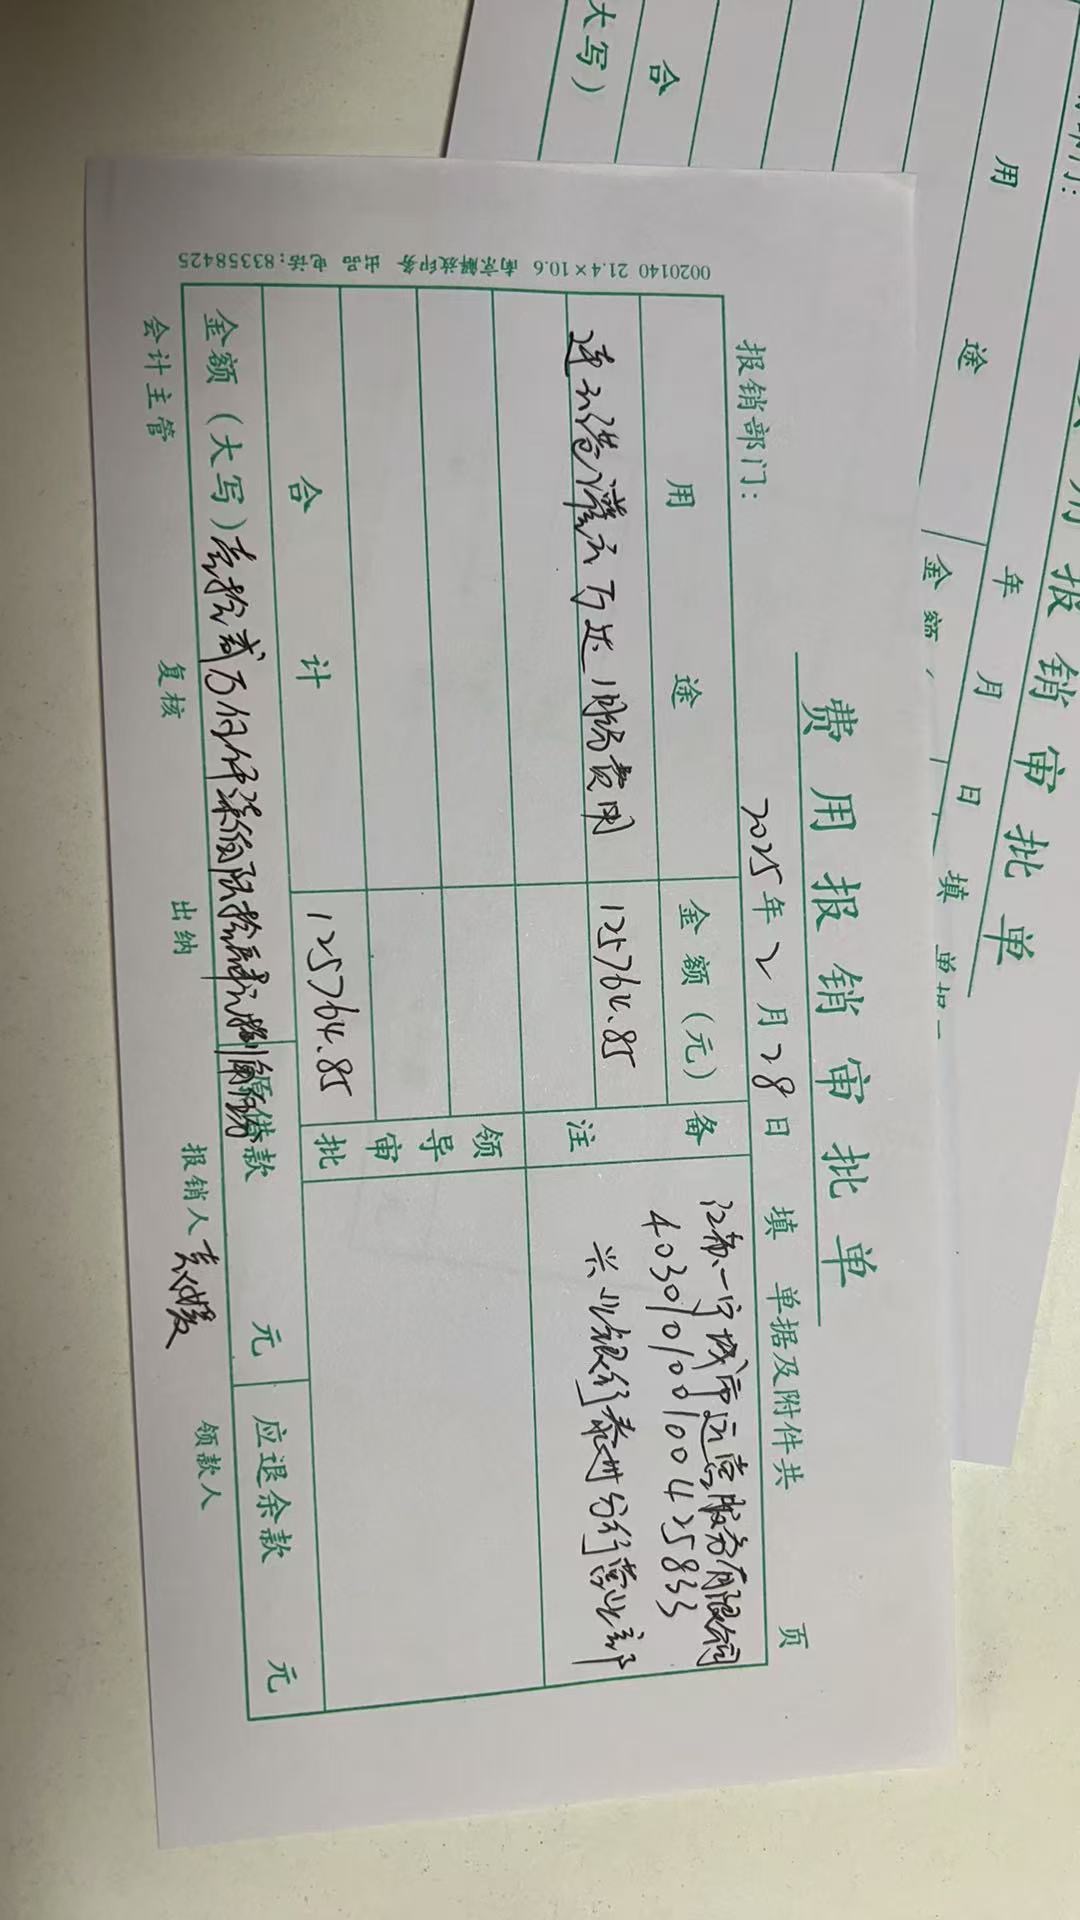 费用报销审批单
报销部门： 2025年2月28日 填 单据及附件共 页
用途 金额（元） 备注
连云港灌云万达 服务费用 125764.85
江苏一宁城市运营服务有限公司
403010100100425833
兴业银行泰州分行营业部
领导审批
合计 125764.85
金额（大写）壹拾贰万伍仟柒佰陆拾肆元捌角伍分 原借款 元 应退余款 元
会计主管 复核 出纳 报销人 领款人
0020140 21.4×10.6 南京解放印务 出品 电话:83358425
费用报销审批单
报销部门：
年 月 日 填 单据
用途 金额
合
大写）